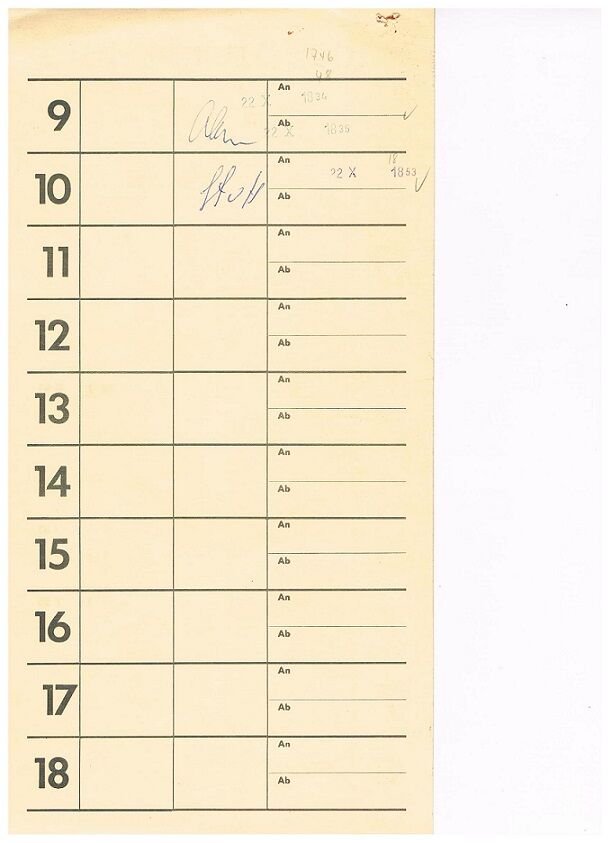 1746
48
9
An
22 X 1834
Ab
22 X 1835
10
An
18
22 X 1853
Ab
11
An
Ab
12
An
Ab
13
An
Ab
14
An
Ab
15
An
Ab
16
An
Ab
17
An
Ab
18
An
Ab